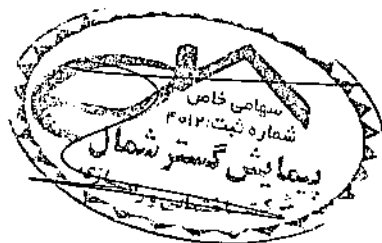 سهامی خاص
شماره ثبت: ۴۰۱۲
پیمایش گستر شمال
شرکت